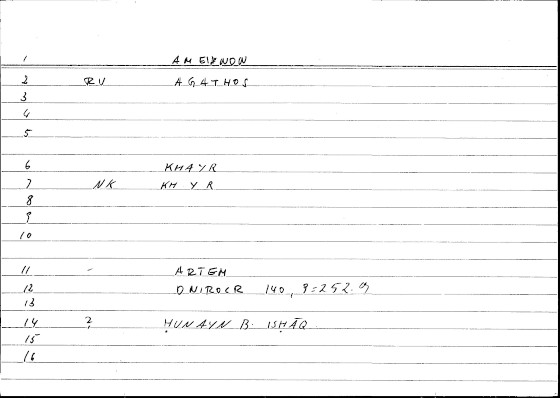 1 AMEINON
2 RU AGATHOS
3
4
5
6 KHAYR
7 NK KH Y R
8
9
10
11 - ARTEM
12 ONIROCR 140, 9=252.9
13
14 ? ḤUNAYN B. ISḤĀQ
15
16